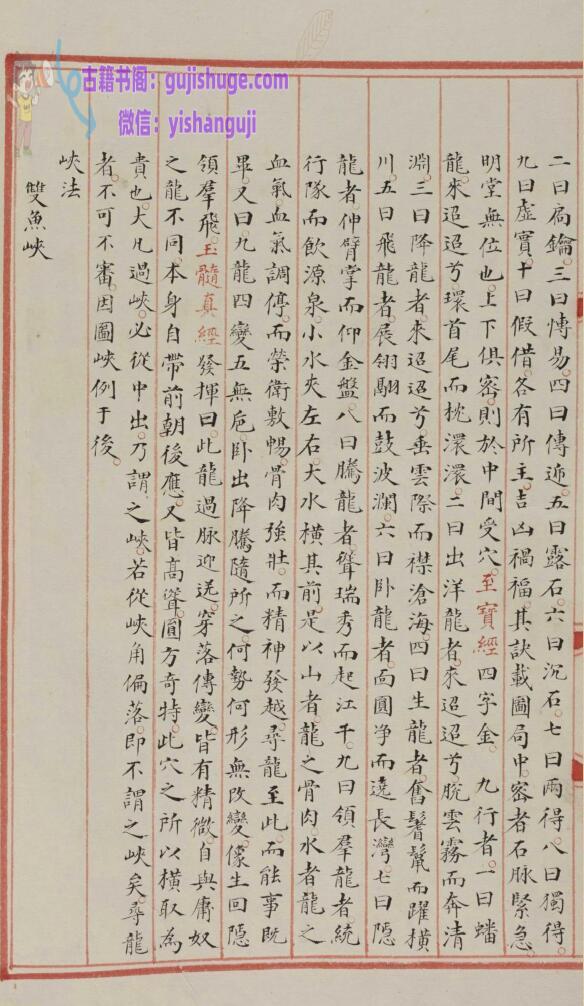 古籍书阁：gujishuge.com
微信：yishanguji
二曰扃鑰三曰博易四曰傳遞五曰露石六曰沉石七曰兩得八曰獨得
九曰虛實十曰假借各有所主吉凶禍福其訣載圖局中密者石脉緊急
明堂無位也上下俱密則於中間受穴至寶經四字金 九行者一曰蟠
龍來迢迢兮環首尾而枕澴澴二曰出洋龍者來迢迢兮脫雲霧而奔清
淵三曰降龍者來迢迢兮垂雲際而襟滄海四曰生龍者奮鬐鬣而躍橫
川五曰飛龍者展翎翮而鼓波瀾六曰卧龍者面圓淨而遶長灣七曰隱
龍者伸臂掌而仰金盤八曰騰龍者聳瑞秀而起江干九曰領羣龍者統
行隊而飲源泉小水夾左右大水橫其前是以山者龍之骨肉水者龍之
血氣血氣調停而榮衛敷暢骨肉強壯而精神發越尋龍至此而能事既
畢又曰九龍四變五無卮卧出降騰隨所之何勢何形無改變像生回隱
領羣飛玉髓真經發揮曰此龍過脉迎送穿落傳變皆有精微自與庸奴
之龍不同本身自帶前朝後應又皆高聳圓方奇特此穴之所以橫取為
貴也大凡過峽必從中出乃謂之峽若從峽角偏落即不謂之峽矣尋龍
者不可不審因圖峽例于後
峽法
雙魚峽